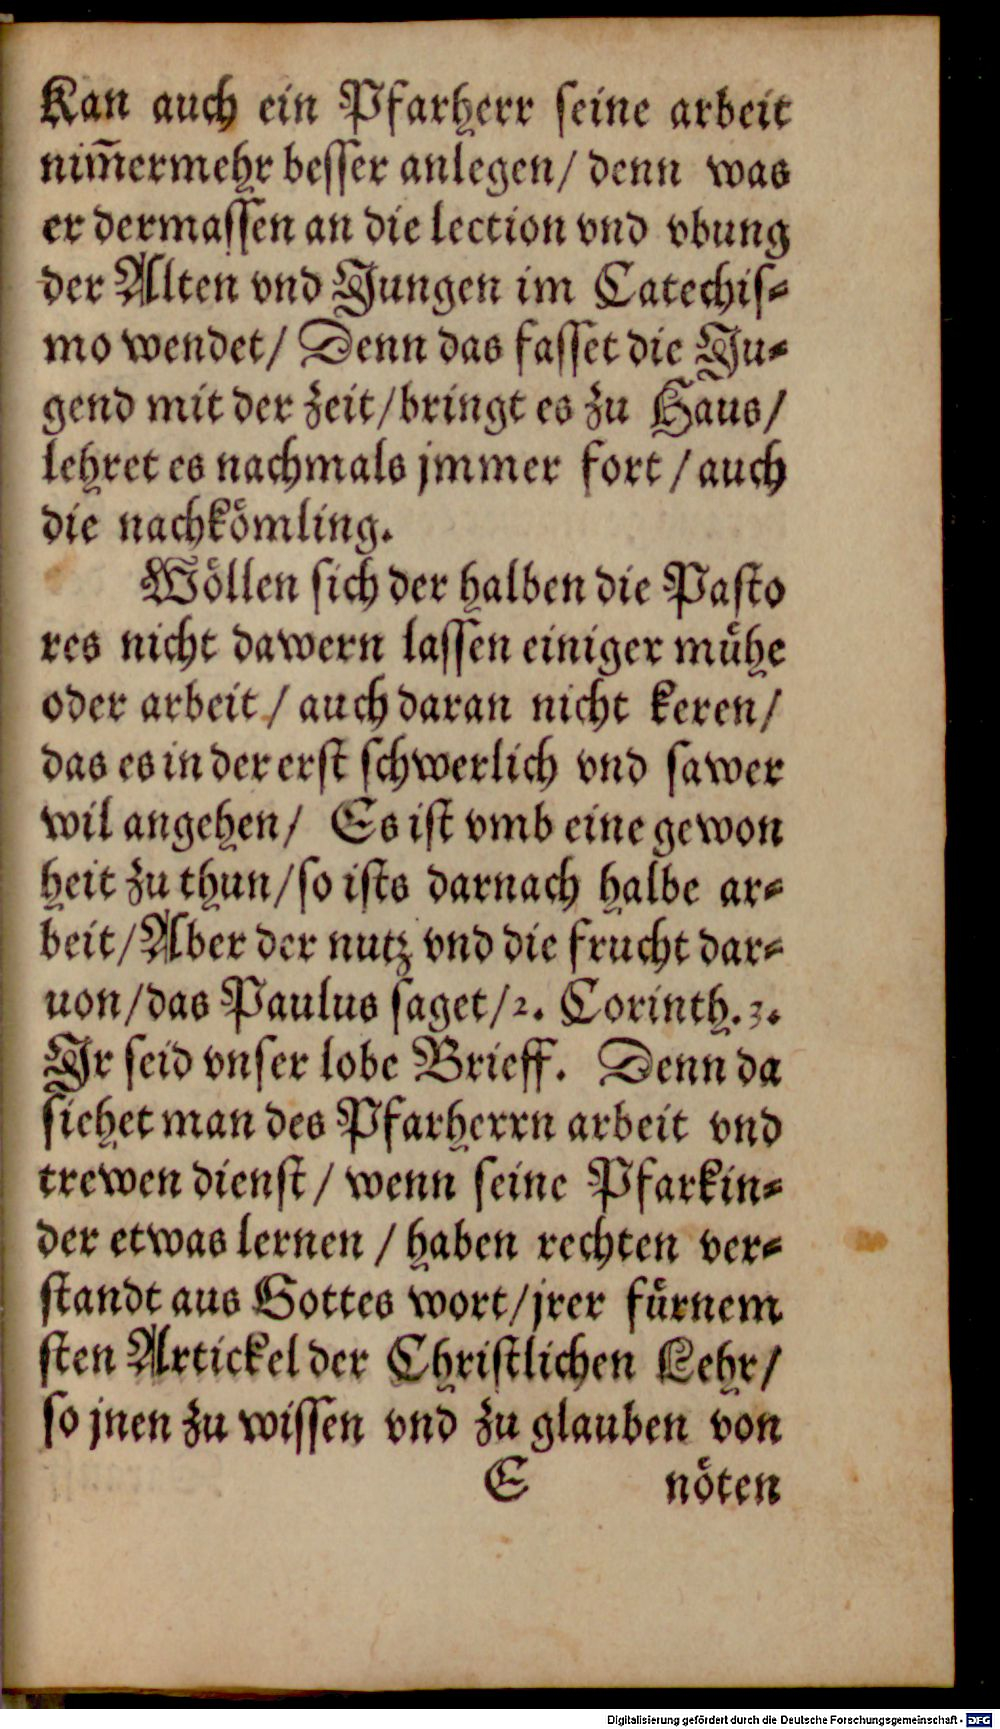 Kan auch ein Pfarherr seine arbeit
nim̄ermehr besser anlegen/ denn was
er dermassen an die lection vnd vbung
der Alten vnd Jungen im Catechis-
mo wendet/ Denn das fasset die Ju-
gend mit der zeit/bringt es zu Haus/
lehret es nachmals jmmer fort / auch
die nachkoͤmling.
Woͤllen sich der halben die Pasto
res nicht dawern lassen einiger muͤhe
oder arbeit / auch daran nicht keren/
das es in der erst schwerlich vnd sawer
wil angehen/ Es ist vmb eine gewon
heit zu thun/so ists darnach halbe ar-
beit/Aber der nutz vnd die frucht dar-
uon/das Paulus saget/2. Corinth. 3.
Jr seid vnser lobe Brieff. Denn da
siehet man des Pfarherrn arbeit vnd
trewen dienst / wenn seine Pfarkin-
der etwas lernen / haben rechten ver-
standt aus Gottes wort/jrer fuͤrnem
sten Artickel der Christlichen Lehr/
so jnen zu wissen vnd zu glauben von
E noͤten
Digitalisierung gefördert durch die Deutsche Forschungsgemeinschaft - DFG